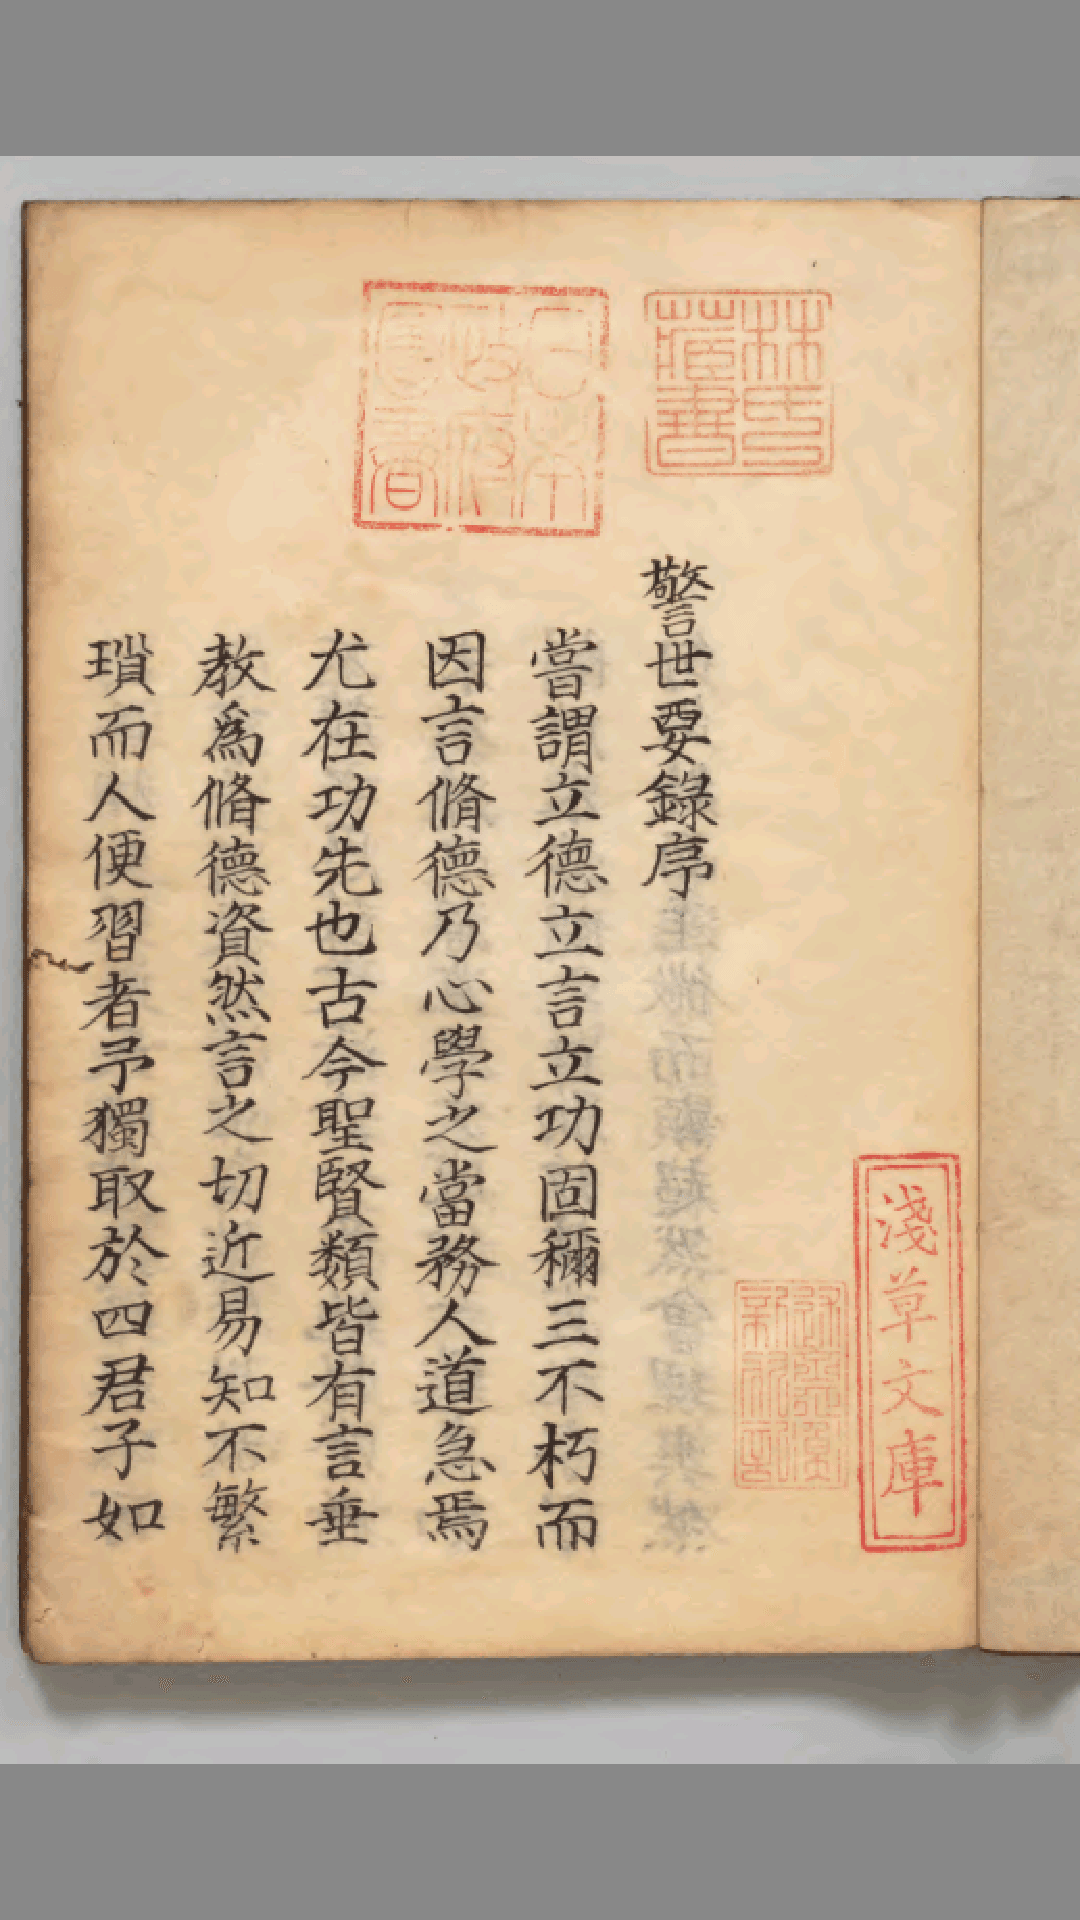 警世要錄序
嘗謂立德立言立功固稱三不朽而
因言脩德乃心學之當務人道急焉
尤在功先也古今聖賢類皆有言垂
教爲脩德資然言之切近易知不繁
瑣而人便習者予獨取於四君子如
林氏藏書
日本政府圖書
淺草文庫